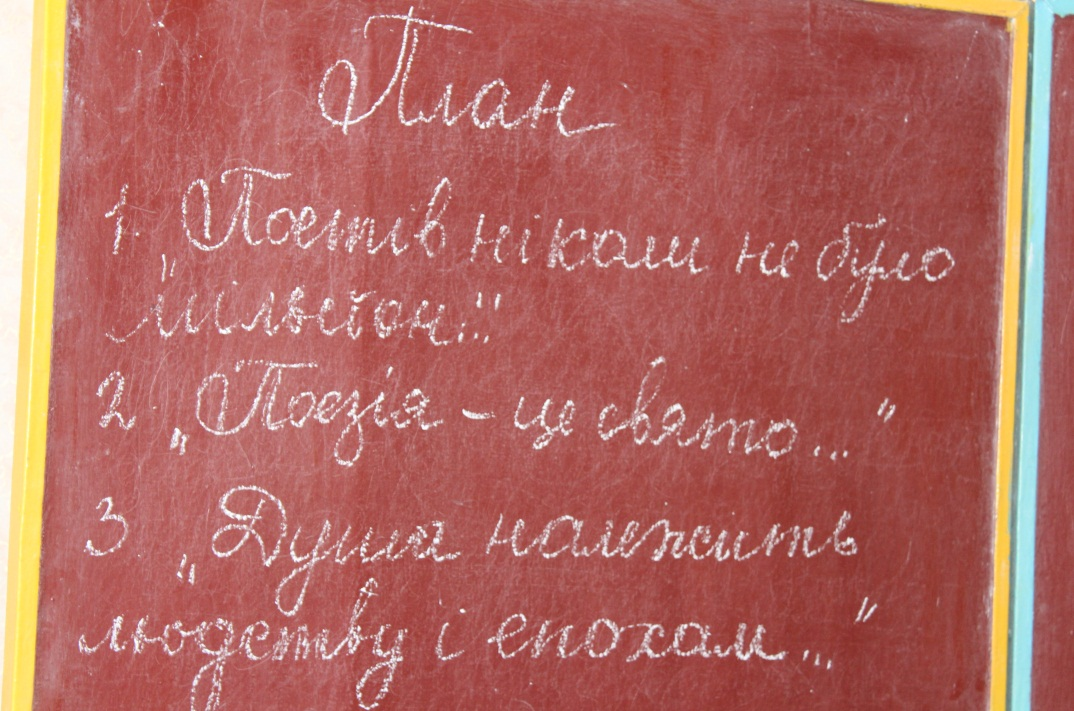 План
1. „Поетів ніколи не було
мільйон..."
2 „Поезія – це свято..."
3 „Душа належить
людству і епохам..."